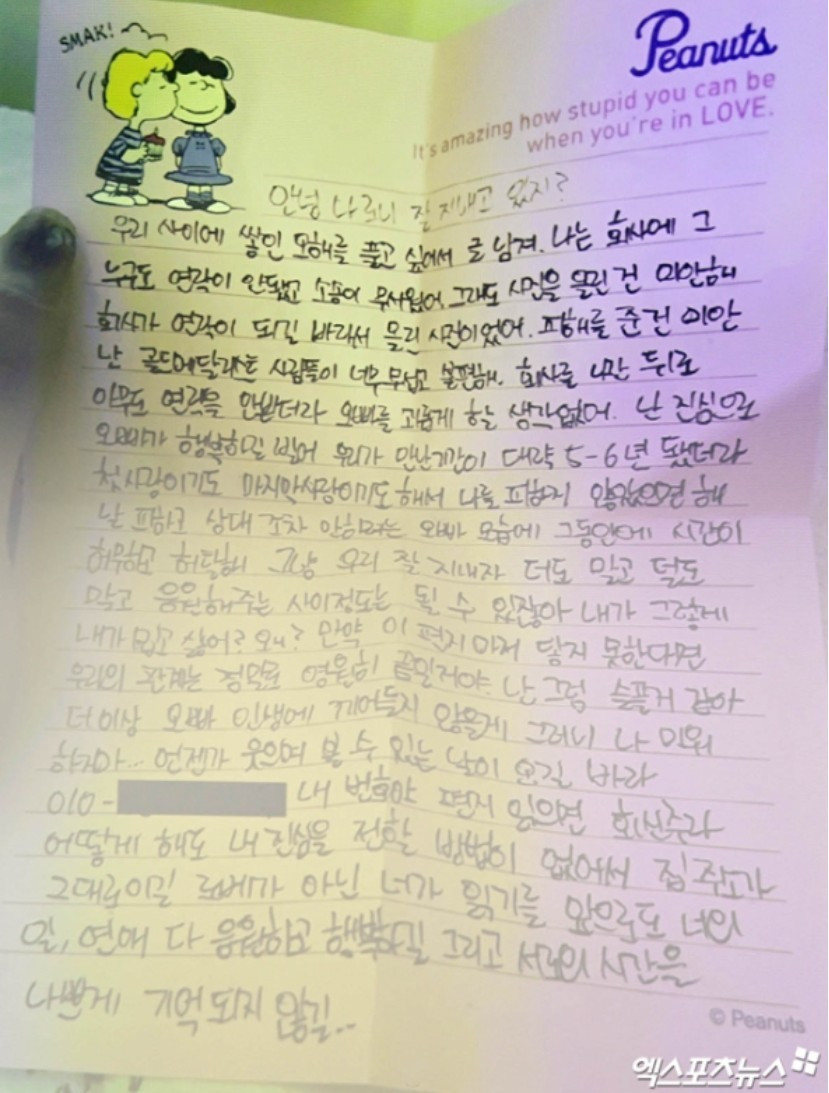 SMAK!
Peanuts
It's amazing how stupid you can be
when you're in LOVE.
안녕 나 잘 지내고 있지?
우리 사이에 쌓인 오해를 풀고 싶어서 글 남겨. 나는 회사에 그
누구도 연락이 안됐고 소송이 무서웠어. 그래도 사진을 올린 건 미안해
회사가 연락이 되길 바라서 올린 사진이었어. 피해를 준건 미안
난 골드메달리스트 사람들이 너무 무섭고 불편해. 회사를 나간 뒤로
아무도 연락을 안받더라 오빠를 괴롭게 할 생각없어. 난 진심으로
오빠가 행복하길 빌어 우리가 만난기간이 대략 5-6년 됐더라
첫사랑이기도 마지막사랑이기도 해서 나를 피하지 않았으면 해
날 피하고 상대조차 안하려는 오빠 모습에 그동안에 시간이
허무하고 허탈해 그냥 우리 잘 지내자 더도 말고 덜도
말고 응원해주는 사이정도는 될 수 있잖아 내가 그렇게
내가 밉고 싫어? 왜? 만약 이 편지마저 닿지 못한다면
우리의 관계는 정말로 영원히 끝일거야. 난 그럼 슬플거 같아
더이상 오빠 인생에 끼어들지 않을게 그러니 나 미워
하지마... 언젠가 웃으며 볼 수 있는 날이 오길 바라
010- 내 번호야 편지 읽으면 회신주라
어떻게 해도 내 진심을 전할 방법이 없어서 집 주소가
그대로이길 로베가 아닌 너가 읽기를 앞으로도 너의
일, 연애 다 응원하고 행복하길 그리고 서로의 시간을
나쁘게 기억되지 않길..
© Peanuts
엑스포츠뉴스